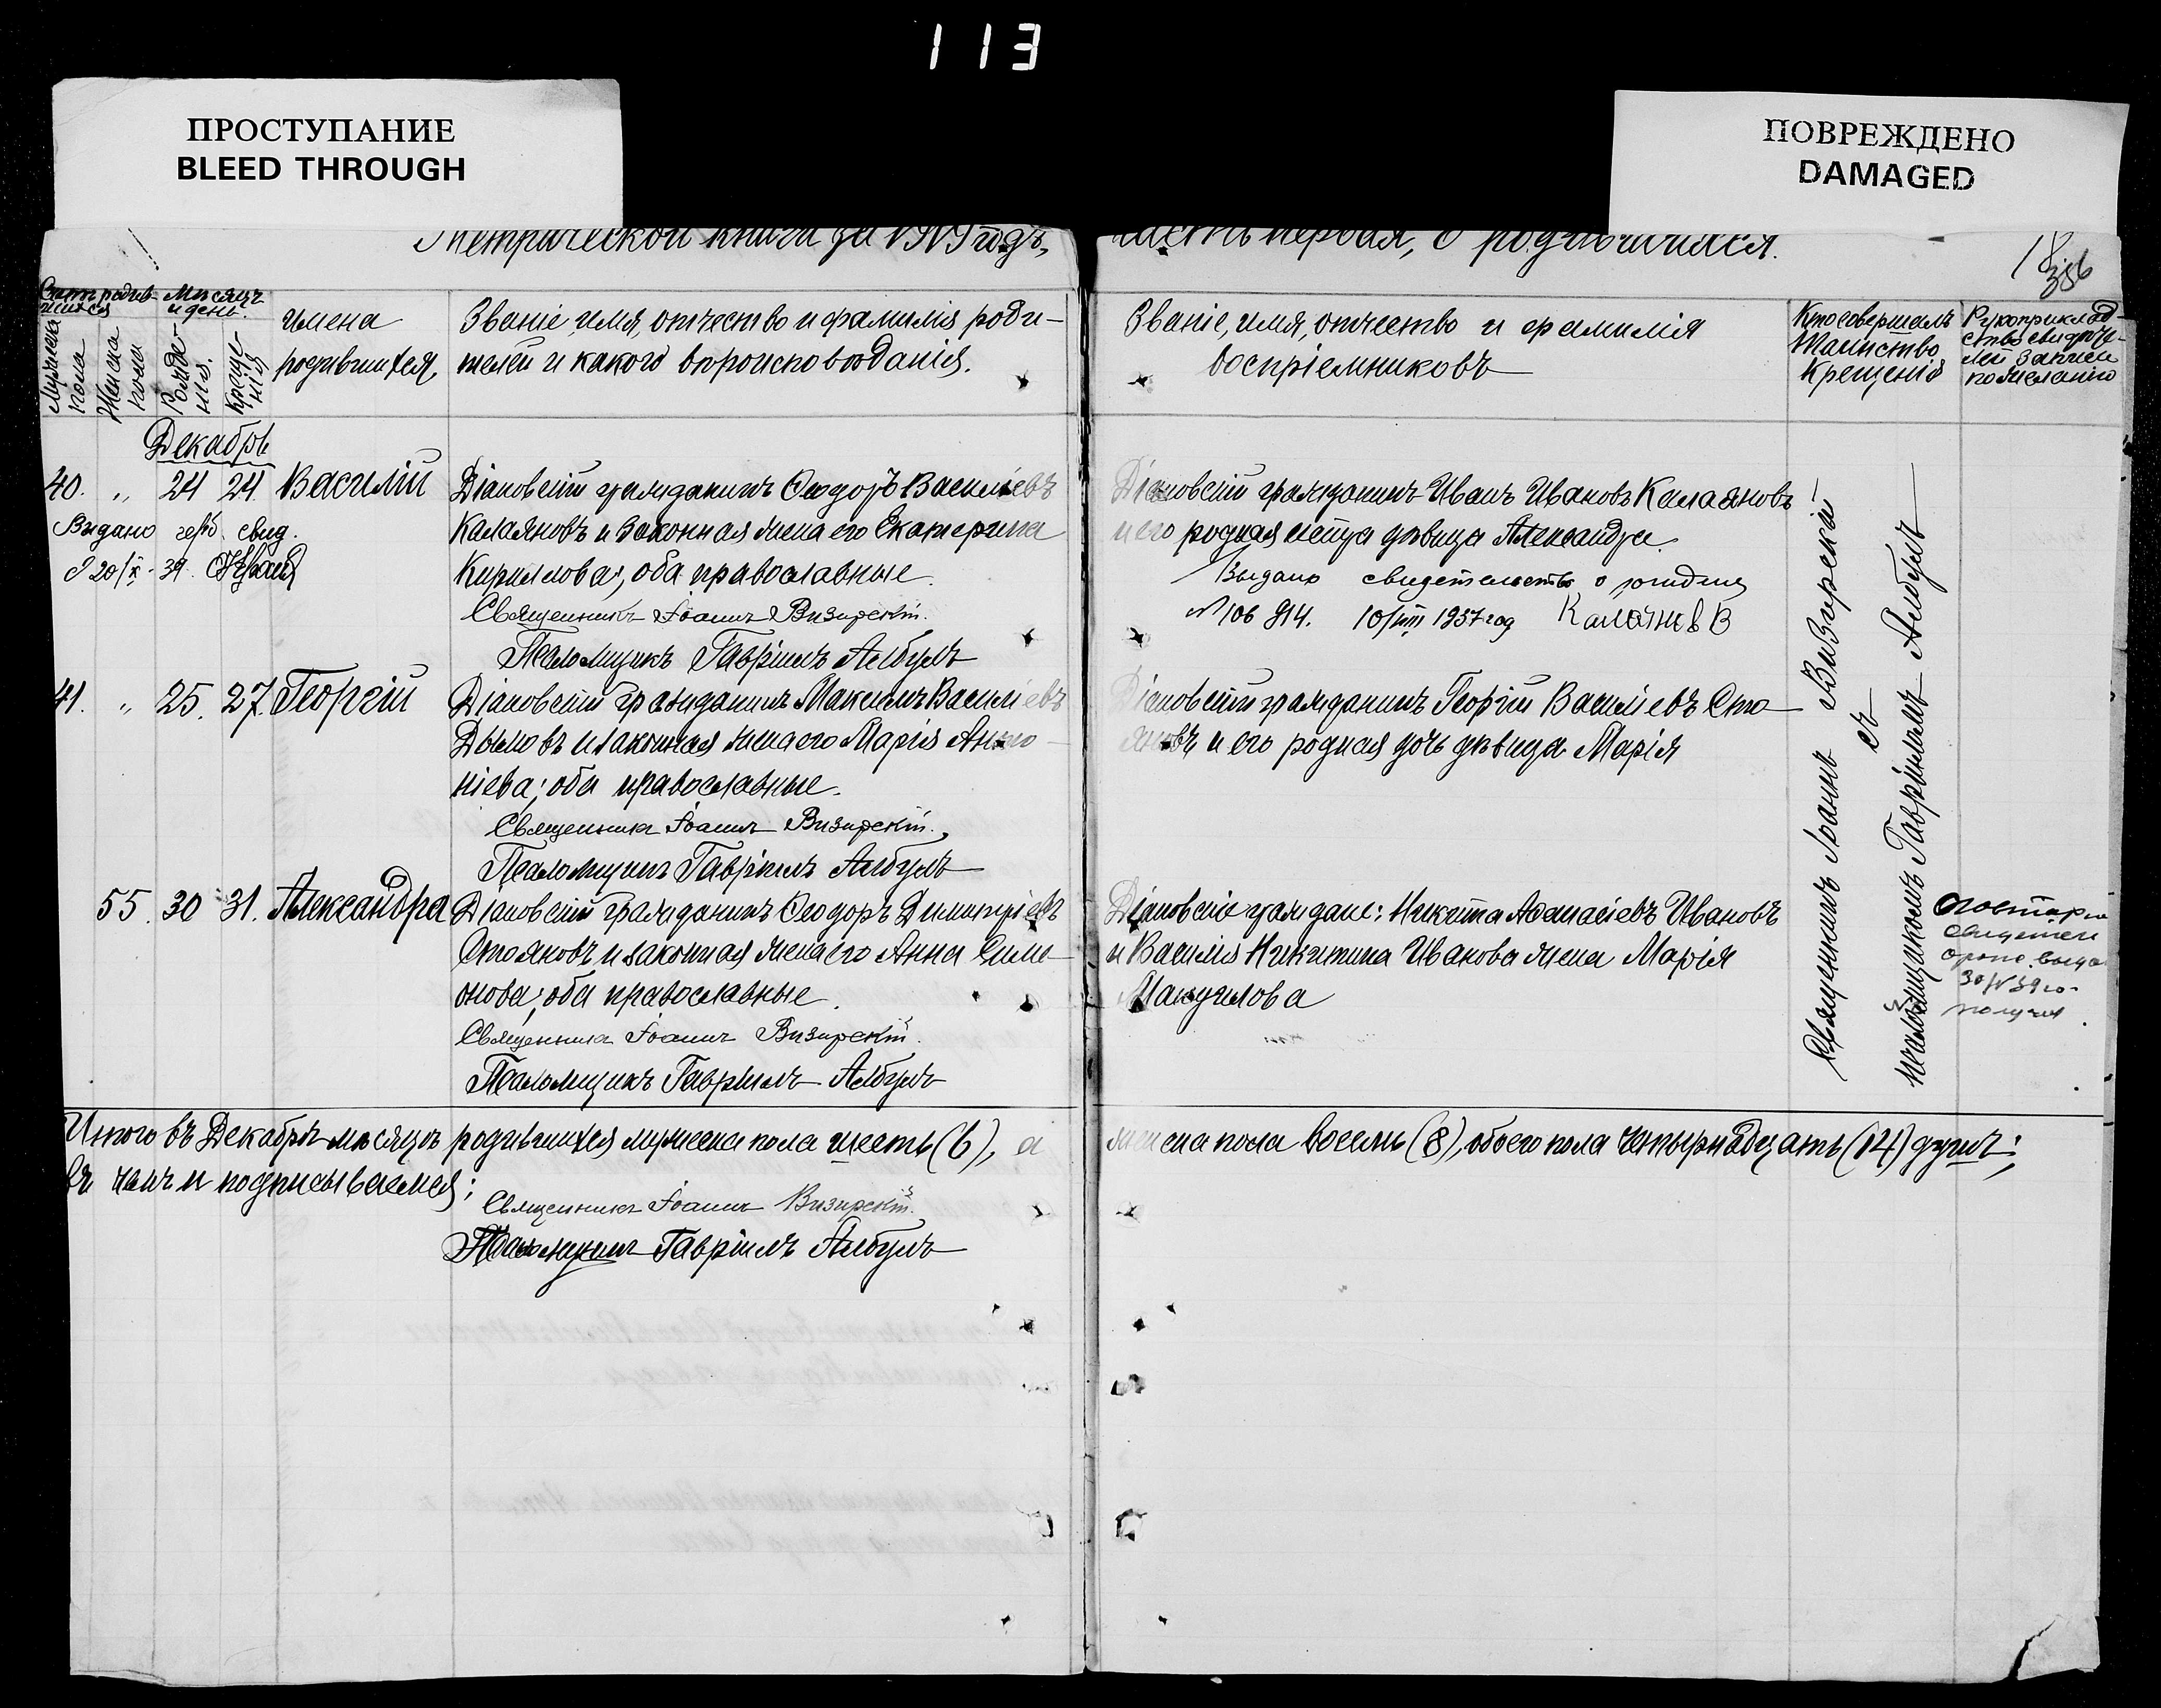 113
ПРОСТУПАНИЕ
BLEED THROUGH
ПОВРЕЖДЕНО
DAMAGED
Метрической книги за 1919 годъ,
часть первая, о родившихся.
Счетъ родив-
шихся
Мужеска
пола
Женска
пола
Мѣсяцъ
и день.
Рожде-
нія.
Креще-
нія
Имена
родившихся,
Званіе, имя, отчество и фамилія роди-
телей и какого вѣроисповѣданія.
Званіе, имя, отчество и фамилія
воспріемниковъ
Кто совершалъ
Таинство
Крещенія
Рукоприклад-
ство свидѣте-
лей записи
по желанію
Декабрь
40. „ 24 24. Василій
Выдано свид.
Діановскій гражданинъ Ѳеодоръ Васильевъ
Калаяновъ и законная жена его Екатерина
Кириллова; оба православные.
Священникъ Іоаннъ Визирскій.
Псаломщикъ Гавріилъ Албулъ
Діановскій гражданинъ Иванъ Ивановъ Калаяновъ
и его родная сестра дѣвица Александра.
Выдано свидетельство о рождении
№ 106914. 10/VIII 1937 год Калаянов В
41. „ 25. 27. Георгій
Діановскій гражданинъ Максимъ Василіевъ
Дымовъ и законная жена его Марія Анто-
ніева; оба православные.
Священникъ Іоаннъ Визирскій.
Псаломщикъ Гавріилъ Албулъ
Діановскій гражданинъ Георгій Василіевъ Сто-
яновъ и его родная дочь дѣвица Марія
55. 30 31. Александра
Діановскій гражданинъ Ѳеодоръ Димитріевъ
Стояновъ и законная жена его Анна Симе-
онова; оба православные.
Священникъ Іоаннъ Визирскій.
Псаломщикъ Гавріилъ Албулъ
Діановскіе граждане: Никита Аѳанасіевъ Ивановъ
и Василія Никитина Иванова жена Марія
Мануилова
Священникъ Іоаннъ Визирскій
съ
псаломщикомъ Гавріиломъ Албулъ
Итого въ Декабрѣ мѣсяцѣ родившихся мужеска пола шесть (6), а
женска пола восемь (8), обоего пола четырнадцать (14) душъ;
въ чемъ и подписываемся;
Священникъ Іоаннъ Визирскій.
Псаломщикъ Гавріилъ Албулъ